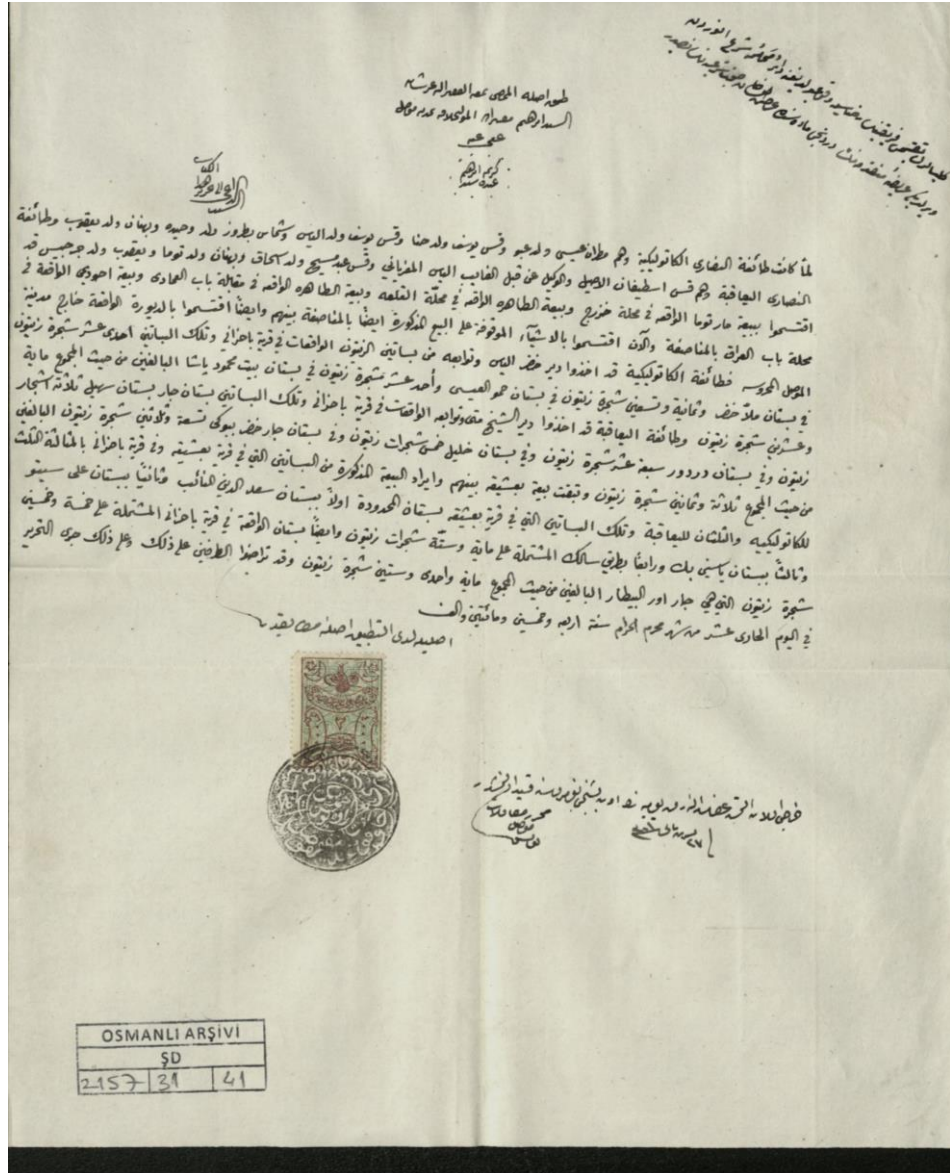 طبق اصله
السيد ابراهيم
عفي عنه
لما كانت طائفة النصارى الكاتوليكية وهم مطران عيسى ولد عبو وقس يوسف ولد حنا وقس يوسف ولد الياس وشماس بطروز ولد وحيده وبهنان ولد يعقوب وطائفة
النصارى اليعاقبة وهم قس اسطيفان الاصيل والوكيل عن قبل الغايب الياس المفرياني وقس عبد مسيح ولد سحاق وبهنان ولد توما ويعقوب ولد جرجيس قد
اقتسموا ببيعة مارتوما الواقعه في محلة خزرج وبيعة الطاهره الواقعه في محلة القلعه وبيعة الطاهره الواقعه في مقابلة باب العمادى وبيعة احودى الواقعة في
محلة باب العراق بالمناصفة والآن اقتسموا بالاشيآء الموقوفة على البيع المذكورة ايضا بالمناصفة بينهم وايضا اقتسموا بالديورة الواقعة خارج مدينة
الموصل المحروسه فطائفة الكاتوليكية قد اخذوا دير خضر الياس وتوابعه من بساتين الزيتون الواقعات في قرية باحزاني وتلك البساتين احدى عشر شجرة زيتون
في بستان ملا خضر وثمانية وتسعين شجرة زيتون في بستان حمو العيسى وأحد عشر شجرة زيتون في بستان بيت محمود پاشا البالغين من حيث المجموع ماية
وعشرين شجرة زيتون وطائفة اليعاقبة قد اخذوا دير الشيخ متى وتوابعه الواقعات في قرية باحزاني وتلك البساتين بستان جار بستان سهيل ثلاثة اشجار
زيتون وفي بستان دردور سبعة عشر شجرة زيتون وفي بستان خليل خمس شجرات زيتون وفي بستان جار خضر بيوكى تسعة وثلاثين شجرة زيتون البالغين
من حيث المجموع ثلاثة وثمانين شجرة زيتون وتبقت بيعة بعشيقه بينهم وايراد البيعة المذكورة من البساتين التي في قرية بعشيقه وفي قرية باحزاني بالمثالثة الثلث
للكاتوليكيه والثلثان لليعاقبة وتلك البساتين التي في قرية بعشيقه بستان المحدودة اولا ببستان سعد الدين النائب وثانيا ببستان على سيتو
وثالثا ببستان ياسين بك ورابعا بطريق سالك المشتملة على ماية وستة شجرات زيتون وايضا بستان الواقعة في قرية باحزاني المشتملة على خمسة وخمسين
شجرة زيتون التي هي جار اور البيطار البالغين من حيث المجموع ماية واحدى وستين شجرة زيتون وقد تراضوا الطرفين على ذلك وعلى ذلك جرى التحرير
في اليوم الحادى عشر من شهر محرم الحرام سنة اربعه وخمسين ومائتين والف
اصليه لدى التطبيق اصلنه مطابقدر
OSMANLI ARŞİVİ
ŞD
2157 31 41